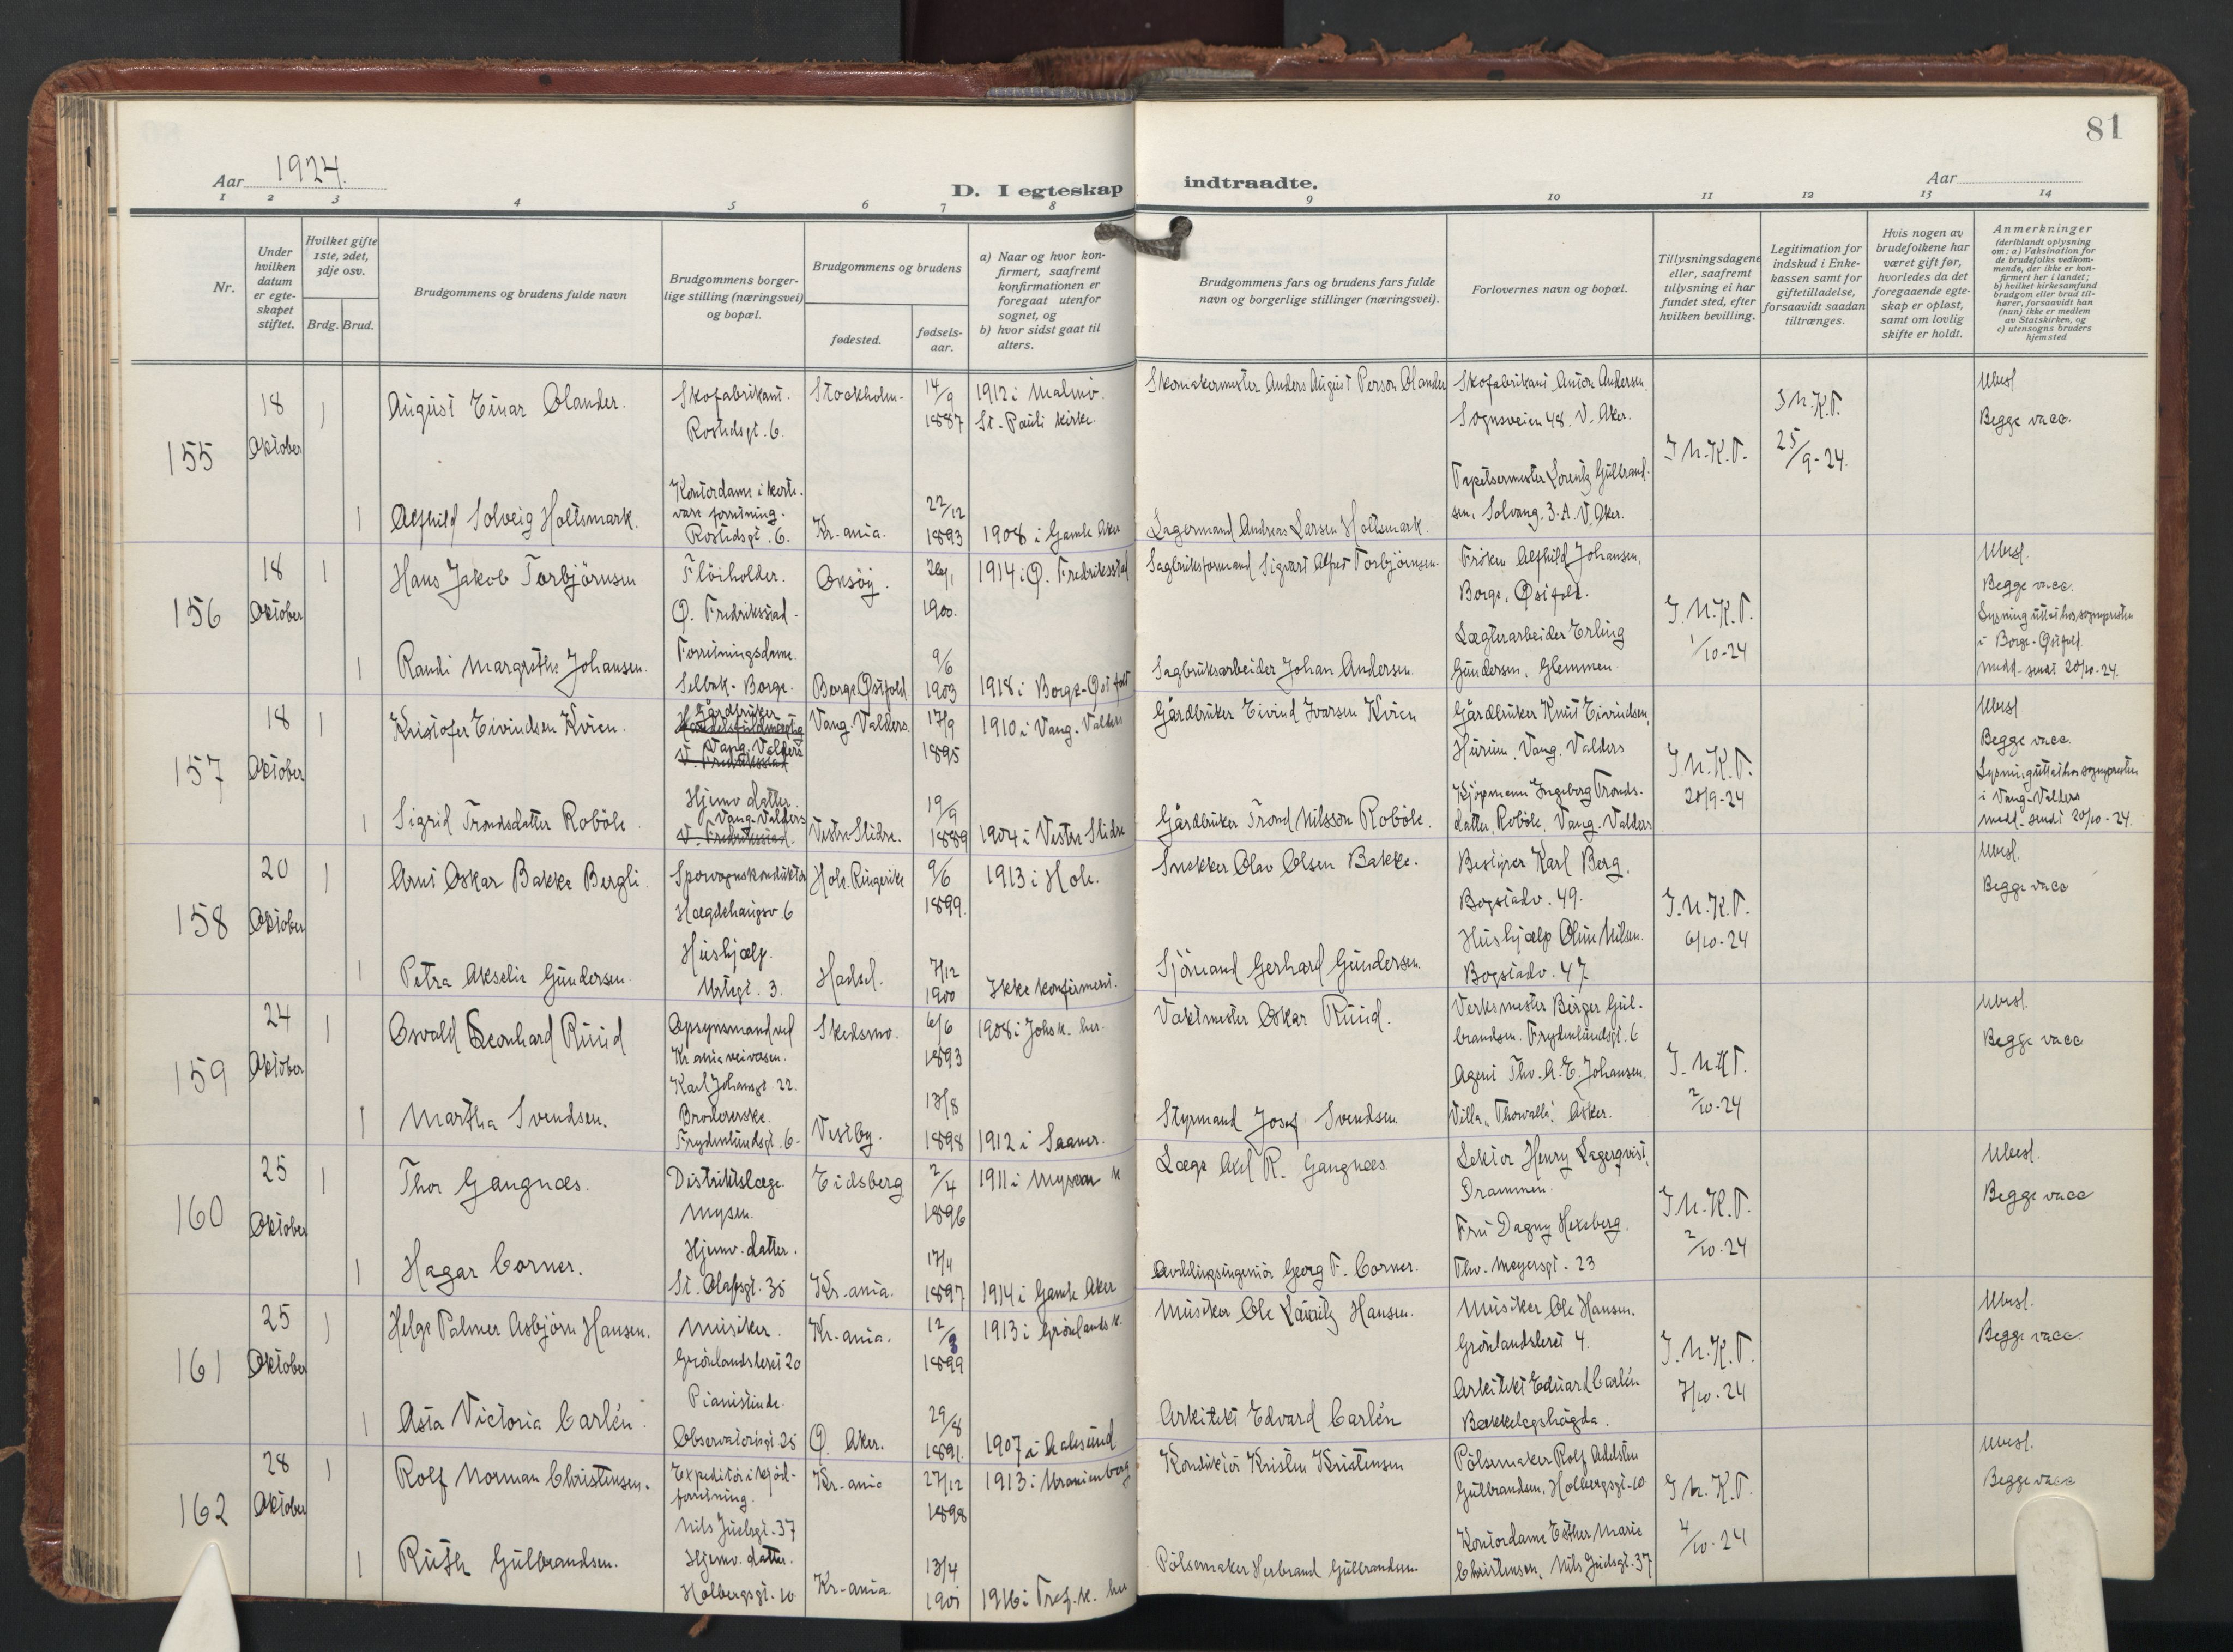 81
Aar 1924.
D. I egteskap indtraadte.
Aar
1 2 3 4 5 6 7 8 9 10 11 12 13 14
Nr.
Under hvilken datum er egte-skapet stiftet.
Hvilket gifte 1ste, 2det, 3dje osv.
Brdg. Brud.
Brudgommens og brudens fulde navn
Brudgommens borger-lige stilling (næringsvei) og bopæl.
Brudgommens og brudens
fødested.
fødsels-aar.
a) Naar og hvor kon-firmert, saafremt konfirmationen er foregaat utenfor sognet, og
b) hvor sidst gaat til alters.
Brudgommens fars og brudens fars fulde navn og borgerlige stillinger (næringsvei).
Forlovernes navn og bopæl.
Tillysningsdagene eller, saafremt tillysning ei har fundet sted, efter hvilken bevilling.
Legitimation for indskud i Enke-kassen samt for giftetilladelse, forsaavidt saadan tiltrænges.
Hvis nogen av brudefolkene har været gift før, hvorledes da det foregaaende egte-skap er opløst, samt om lovlig skifte er holdt.
Anmerkninger
(deriblandt oplysning om: a) Vaksination for de brudefolks vedkom-mende, der ikke er kon-firmert her i landet; b) hvilket kirkesamfund brudgom eller brud til-hører, forsaavidt han (hun) ikke er medlem av Statskirken, og c) utensogns bruders hjemsted
155
18 Oktober
1
August Einar Olander.
Skofabrikant.
Rostedsgt. 6.
Stockholm.
14/9 1887
1912 i Malmö.
St. Pauli kirke.
Skomakermester Anders August Person Olander
Skofabrikant Anton Andersen.
Sognsveien 48. V. Aker.
J N.K.T.
J N.K.T.
25/9-24.
Ubesl
Begge vacc.
1
Alfhild Solveig Holtsmark.
Kontordame i korte-
vare forretning.
Rostedsgt. 6.
Kr.ania.
22/12 1893
1908 i Gamle Aker
Lagermand Andreas Larsen Holtsmark.
Tapetsermester Lorentz Gulbrand-
sen, Solvang. 3.A. V. Aker.
156
18 Oktober
1
Hans Jakob Torbjörnsen
Flöiholder.
Ø. Fredriksstad.
Onsöy.
26/1 1900.
1914 i Ø. Fredriksstad
Sagbruksformand Sigvart Alfred Torbjörnsen.
Fröken Alfhild Johansen,
Borge, Østfold.
J. N.K.T.
1/10-24
Ubesl.
Begge vacc.
Lysning uttat hos sognepresten
i Borge-Østfold.
Medd. sendt 20/10-24.
1
Randi Margrethe Johansen.
Forretningsdame.
Selbak. Borge.
Borge Østfold
9/6 1903
1918 i Borge-Østfold
Sagbruksarbeider Johan Andersen.
Lægterarbeider Erling
Gundersen, Glemmen.
157
18 Oktober
1
Kristofer Eivindsen Kvien.
Gårdbruker
Handelsfuldmægtig
Vang. Valders
V. Fredriksstad
Vang. Valders.
17/9 1895
1910 i Vang. Valders
Gårdbruker Eivind Ivarsen Kvien
Gårdbruker Knut Eivindsen,
Hurum. Vang. Valders
J N.K.T.
20/9-24
Ubesl
Begge vacc.
Lysning uttat hos sognepresten
i Vang-Valders
medd. sendt 20/10-24.
1
Sigrid Trondsdatter Robøle
Hjemv. datter.
Vang-Valders
V. Fredriksstad.
Vestre Slidre.
19/9 1889
1904 i Vestre Slidre
Gårdbruker Trond Nilsson Robøle.
Kjöpmann Ingeborg Tronds-
datter, Robøle, Vang. Valders
158
20 Oktober
1
Arnt Oskar Bakke Bergli.
Sporvognskonduktör
Hægdehaugsv. 6
Hole. Ringerike
9/6 1899.
1913 i Hole.
Snekker Olav Olsen Bakke.
Bestyrer Karl Berg.
Bogstadv. 49.
J.N.K.T.
6/10-24
Ubesl.
Begge vacc
1
Petra Akselie Gundersen.
Hushjælp.
Urtegt. 3.
Hadsel.
7/12 1900
Ikke konfirmert.
Sjömand Gerhard Gundersen.
Hushjælp Oline Nilsen.
Bogstadv. 47
159
24 Oktober
1
Osvald Leonhard Ruud
Opsynsmand ved
Kr.ania veivæsen.
Karl Johansgt. 22.
Skedsmo.
6/6 1893
1908 i Johs k. her.
Vaktmester Oskar Ruud.
Verksmester Birger Gul-
brandsen. Frydenlundsgt. 6
J. N.K.T.
2/10-24
Ubesl.
Begge vacc
1
Martha Svendsen.
Brodererske.
Frydenlundsgt. 6.
Vestby.
13/8 1898
1912 i Saaner.
Styrmand Josef Svendsen
Agent Thv. A.E. Johansen.
Villa "Thorvalla" Asker.
160
25 Oktober
1
Thor Gangnæs.
Distriktslæge.
Mysen.
Eidsberg
2/4 1896
1911 i Mysen k
Læge Axel R. Gangnæs
Lektor Henry Lagerqvist,
Drammen.
J N.K.T.
2/10-24
Ubesl.
Begge vacc
1
Hagar Corner.
Hjemv. datter.
St. Olafsgt. 35
Kr.ania.
17/4 1897
1914 i Gamle Aker
Avdelingsingeniör Georg F. Corner.
Fru Dagny Hexeberg.
Thv. Meyersgt. 23
161
25 Oktober
1
Helge Palmer Asbjørn Hansen.
Musiker.
Grönlandsleret 20
Kr.ania.
12/3 1899
1913 i Grönlands k.
Musiker Ole Lauritz Hansen.
Musiker Ole Hansen.
Grönlandsleret 4.
J.N.K.T.
7/10-24
Ubesl.
Begge vacc.
1
Asta Victoria Carlén.
Pianistinde.
Observatoriegt 25
Ø. Aker.
29/8 1891.
1907 i Aalesund
Arkitekt Edvard Carlén
Arkitekt Edvard Carlén
Bækkelagshøgda.
162
28 Oktober
1
Rolf Norman Christensen.
Expeditör i kjød-
forretning.
Nils Juelsgt. 37
Kr.ania
27/12 1898
1913 i Uranienborg
Konduktör Kristen Kristensen
Pölsemaker Rolf Adelsten
Gulbrandsen, Holbergsgt. 10
J N.K.T.
4/10-24
Ubesl.
Begge vacc
1
Ruth Gulbrandsen.
Hjemv. datter.
Holbergsgt. 10
Kr.ania.
13/4 1901
1916 i Tref.k. her
Pölsemaker Herbrand Gulbrandsen.
Kontordame Esther Marie
Christensen, Nils Juelsgt. 37